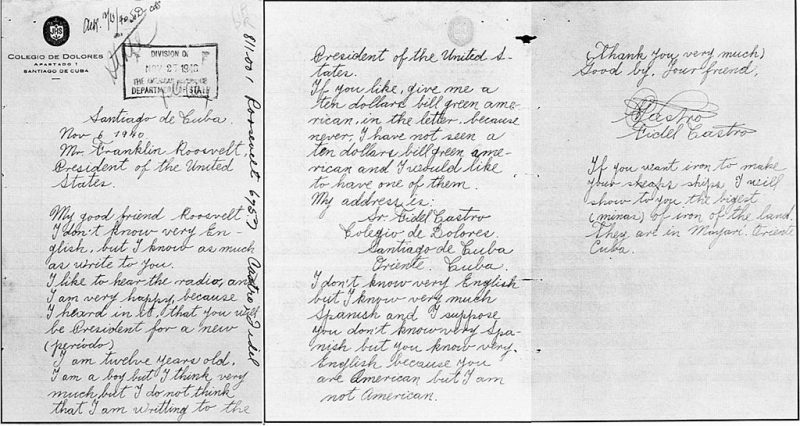 COLEGIO DE DOLORES
APARTADO 1
SANTIAGO DE CUBA
DIVISION OF
NOV 27 1940
THE AMERICAN REPUBLICS
DEPARTMENT OF STATE
Santiago de Cuba.
Nov 6 1940
Mr. Franklin Roosvelt,
President of the United
States.
My good friend Roosvelt
I don't know very En-
glish, but I know as much
as write to you.
I like to hear the radio, and
I am very happy, because
I heard in it, that you will
be President for a new
(periodo)
I am twelve years old.
I am a boy but I think very
much but I do not think
that I am writting to the
811.001 Roosevelt 6757 Castro, Fidel
President of the United S-
tates.
If you like, give me a
ten dollars bill green ame-
rican, in the letter, because
never, I have not seen a
ten dollars bill green ame-
rican and I would like
to have one of them.
My address is:
Sr. Fidel Castro
Colegio de Dolores.
Santiago de Cuba
Oriente. Cuba.
I don't know very English
but I know very much
Spanish and I suppose
you don't know very Spa-
nish but you know very
English because you
are American but I am
not American.
(Thank you very much)
Good by. Your friend,
Castro
Fidel Castro
If you want iron to make
your ships I will
show to you the bigest
(minas) of iron of the land.
They are in Mayari. Oriente
Cuba.